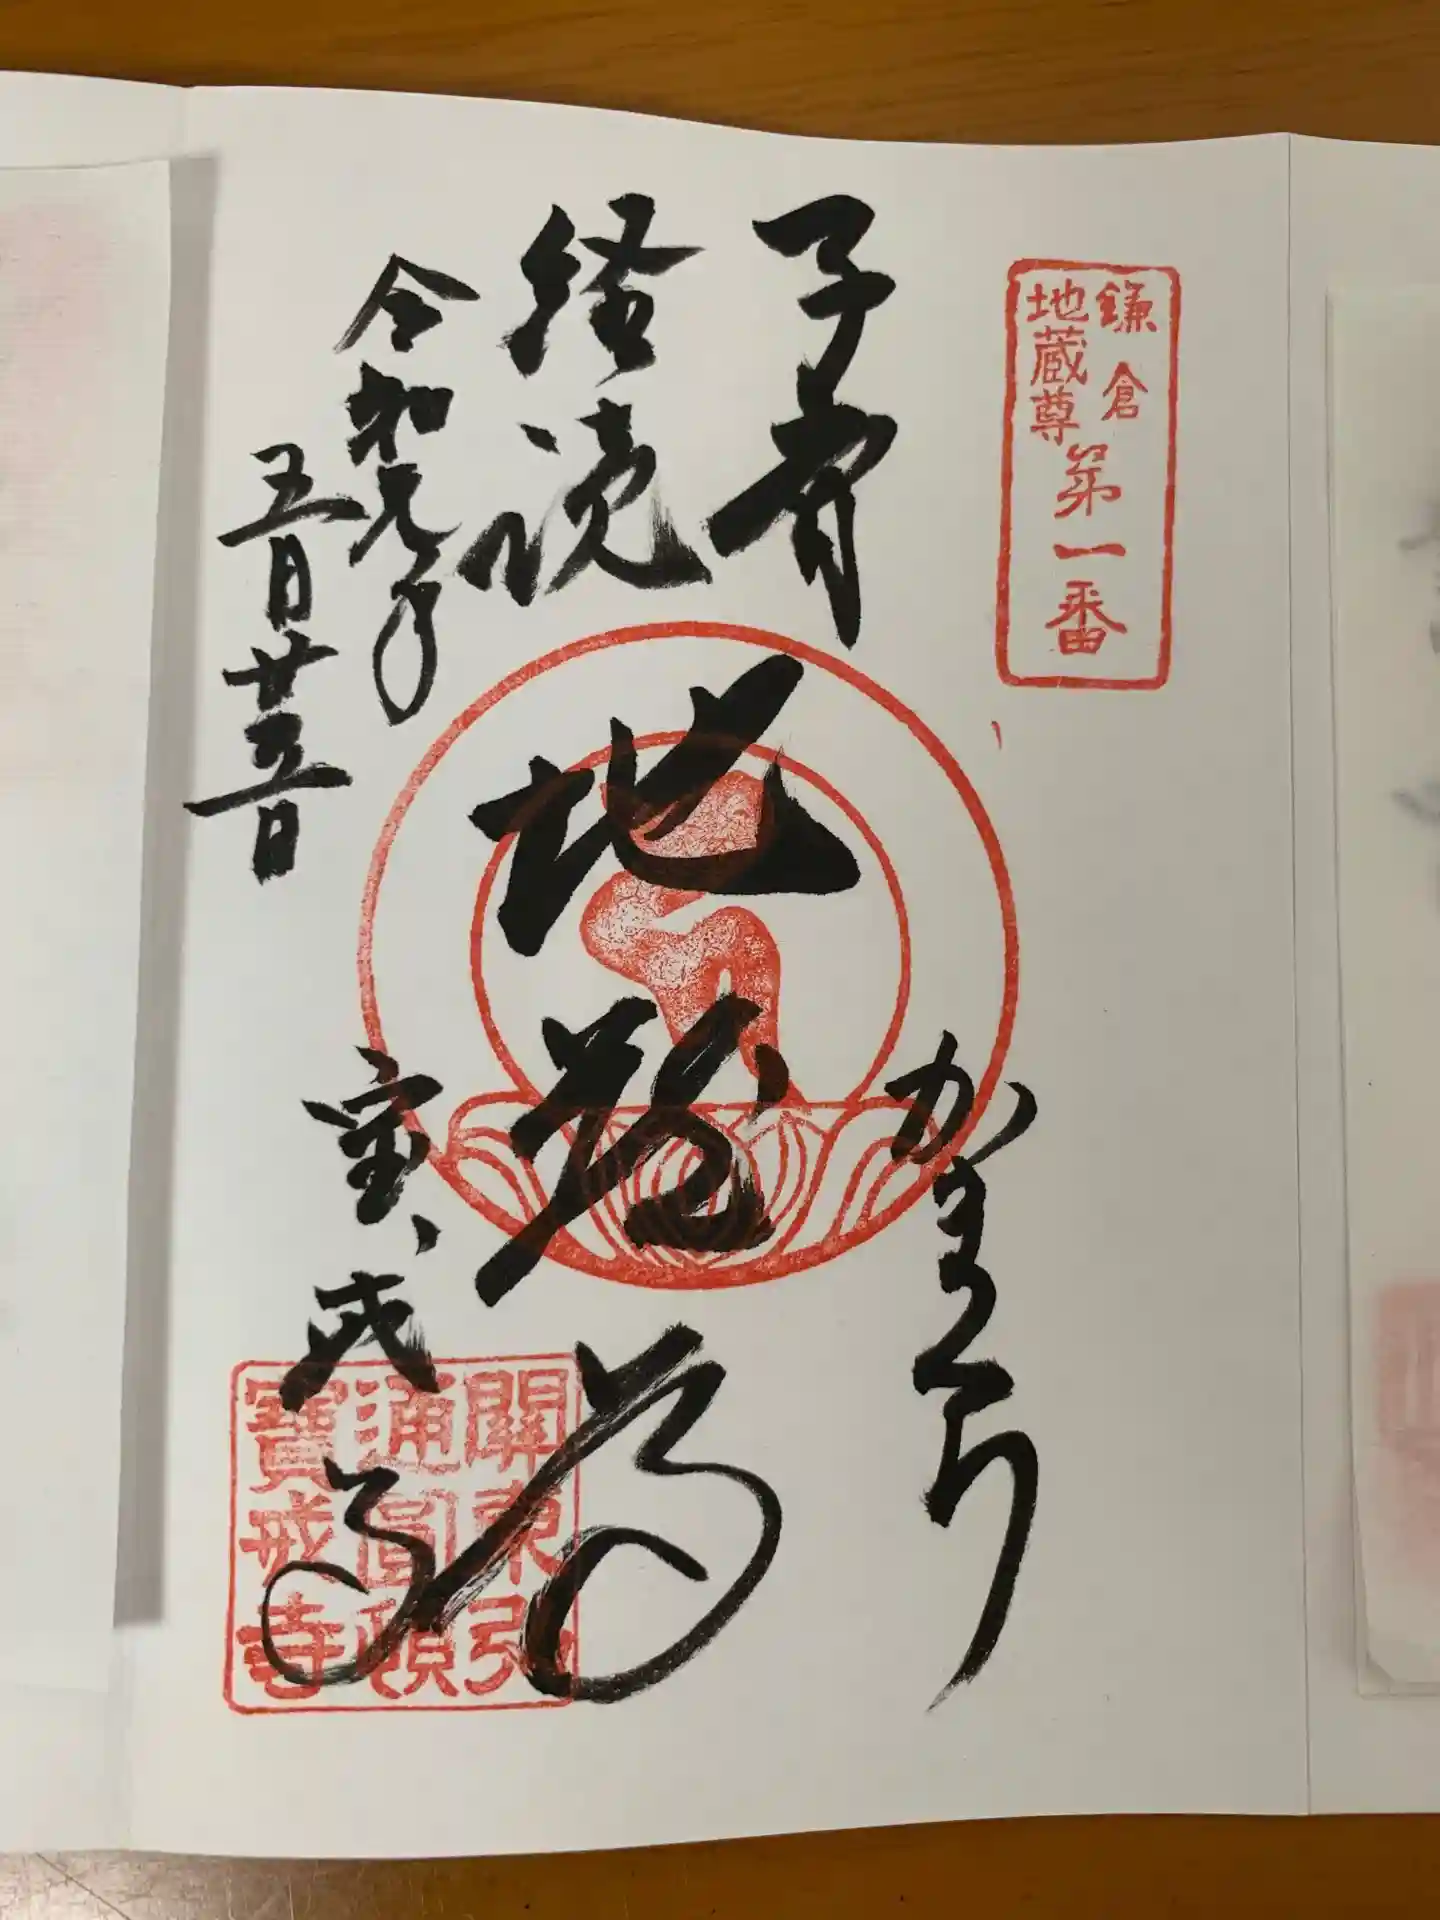 鎌倉
地蔵尊
第一番
子育
経読
地蔵尊
かまくら
令和元年
五月廿五日
宝戒寺
關東弘
通圓頓
寶戒寺